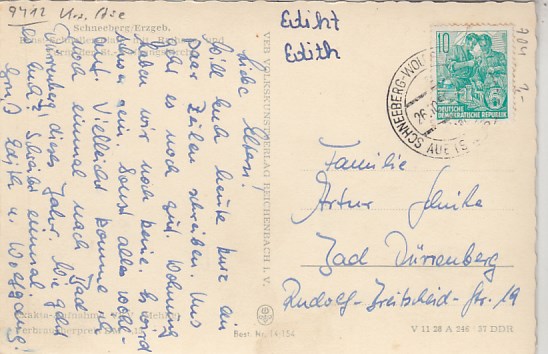 9412 Krs. Aue
Schneeberg/Erzgeb.
Liebe Eltern!
Will Euch heute kurz ein
paar Zeilen schreiben. Uns
geht es noch gut. Wohnung
haben wir noch keine. Es wird
schwer sein. Sonst alles wohl-
auf. Vielleicht komme ich
noch einmal nach Bad
Dürrenberg dieses Jahr. Wie geht
es Euch? Schreibt einmal.
Gruß Edith u. Wolfgang!
VEB VOLKSKUNSTVERLAG REICHENBACH I. V.
Best. Nr. 14/154
Edith
Edith
704
2,-
10
DEUTSCHE
DEMOKRATISCHE REPUBLIK
SCHNEEBERG-
26.10.
AUE
Familie
Artur
Bad Dürrenberg
Rudolf-Breitscheid-Str. 19
V 11 28 A 246 / 57 DDR